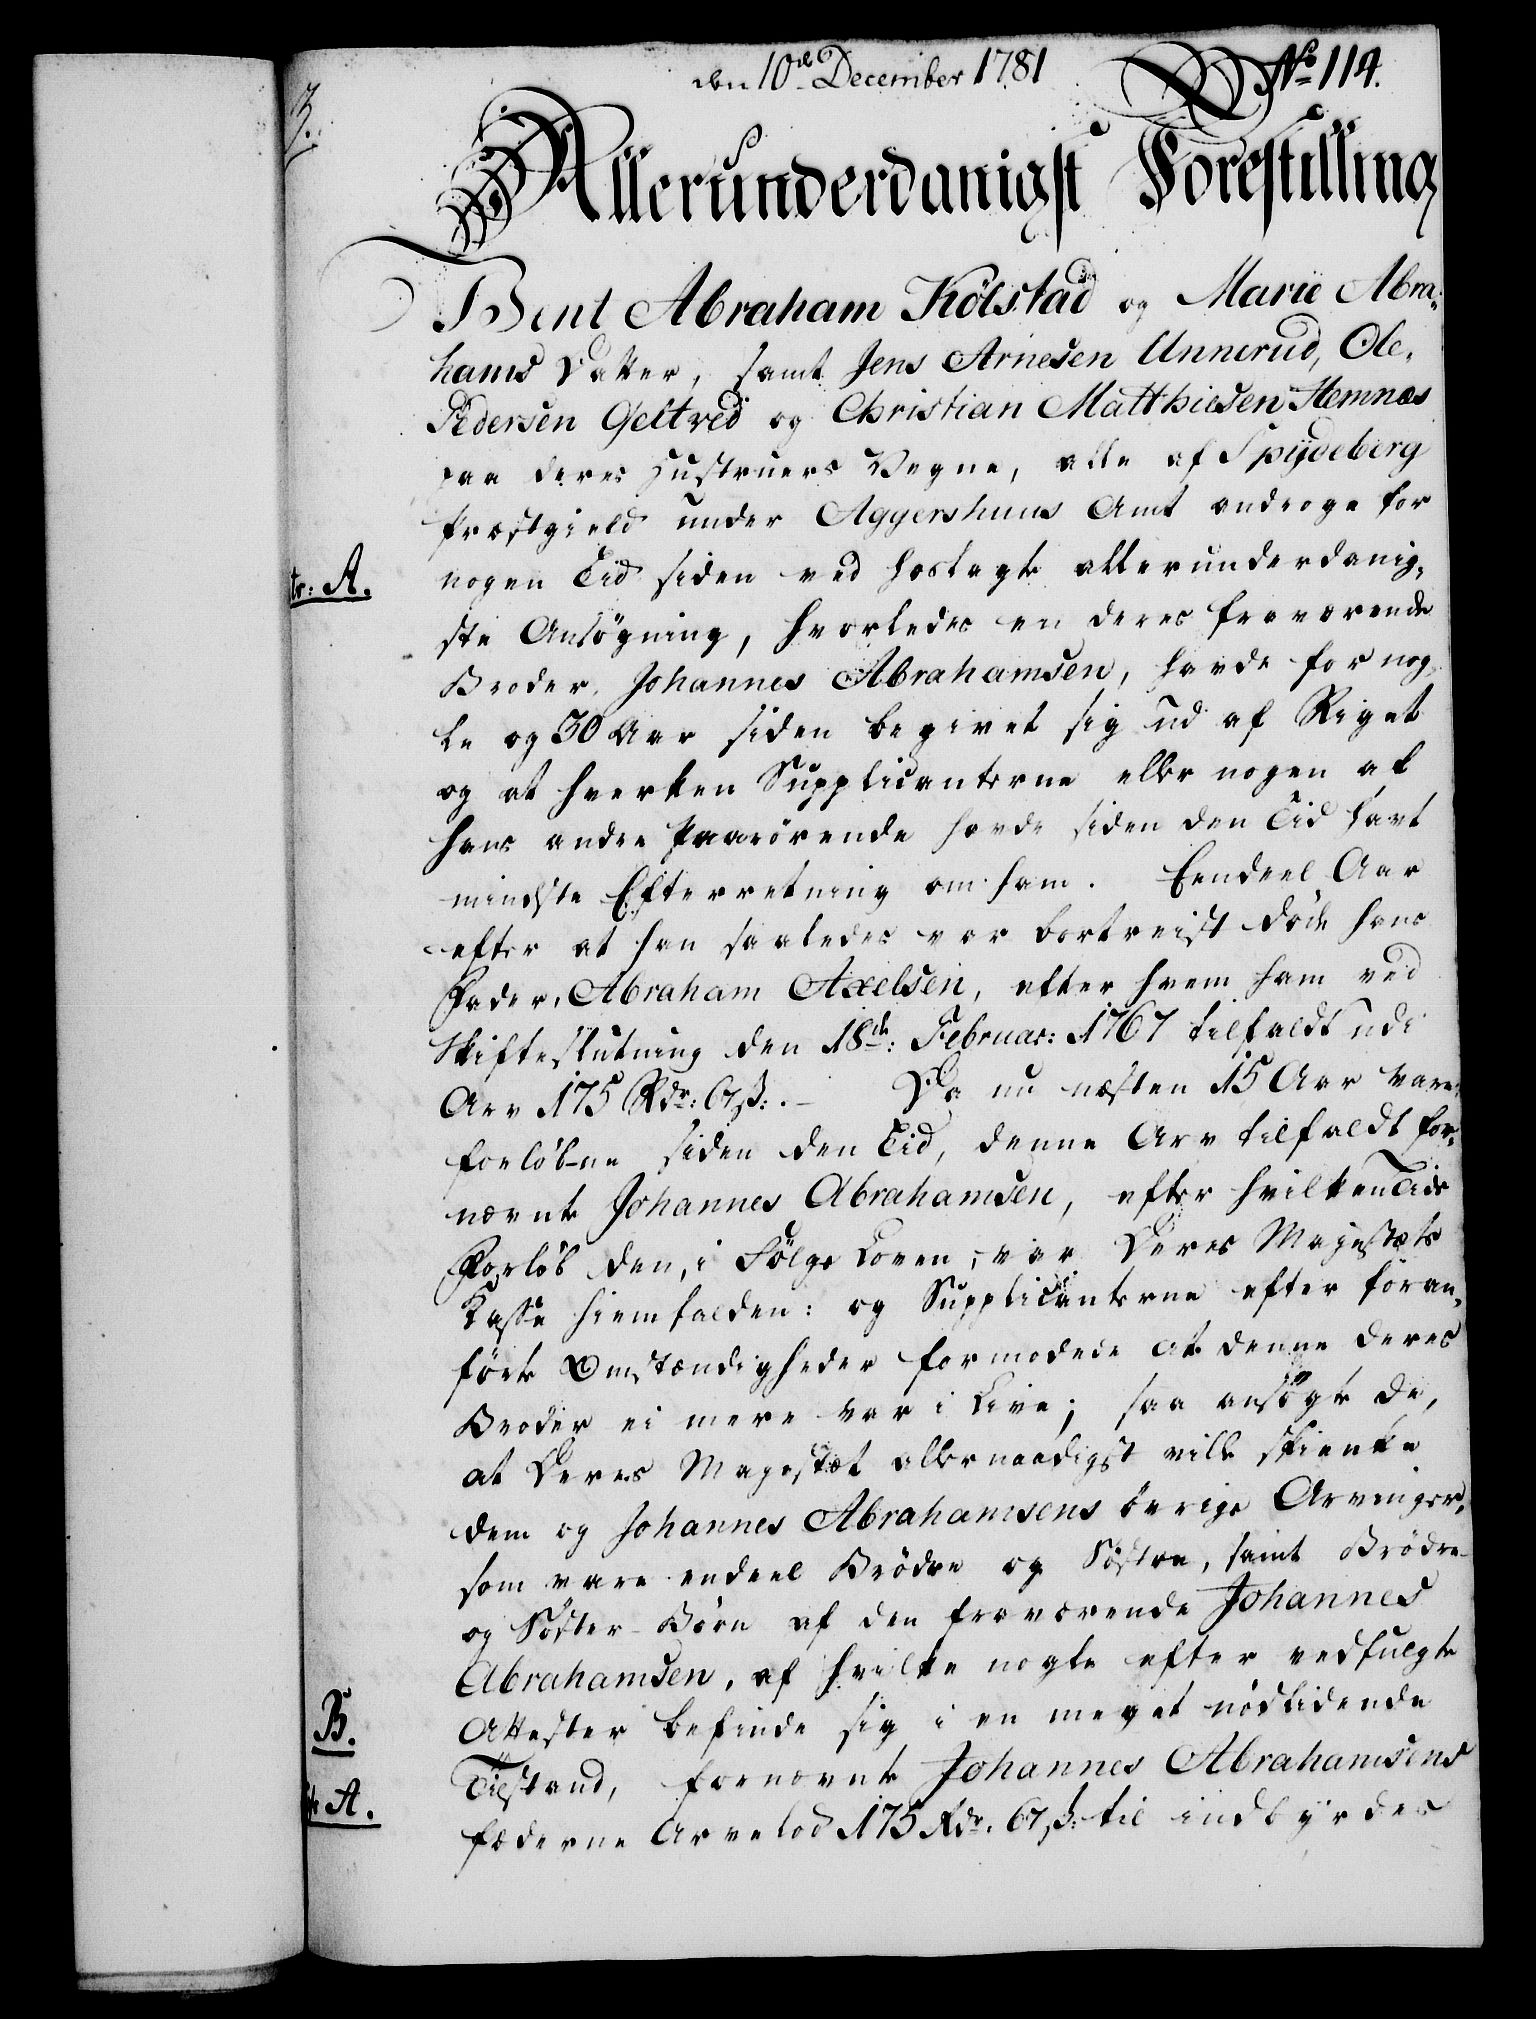 den 10de December 1781
No 114.
3.
Allerunderdanigst Forestilling
Bent Abraham Kölstad og Marie Abra-
hams Datter, samt Jens Arnesen Unnerud, Ole
Pedersen Geltved og Christian Matthiesen Hemnæs
paa deres Hustruers Vegne, alle af Spydeberg
Præstgield under Aggershuus Amt androge for
tr: A.
nogen Tid siden ved hoslagte allerunderdanig-
ste Ansögning, hvorledes en deres fraværende
Broder, Johannes Abrahamsen, havde for nog-
le og 30 Aar siden begivet sig ud af Riget
og at hverken Supplicanterne eller nogen af
hans andre Paarörende havde siden den Tid havt
mindste Efterretning om ham. Eendeel Aar
efter at han saaledes var bortreist döde hans
Fader, Abraham Axelsen, efter hvem ham ved
Skifteslutning den 18de: Februar: 1767 tilfaldt udi
Arv 175 Rdr: 67 ß: . — Da nu næsten 15 Aar vare
forlöbne siden den Tid, denne Arv tilfaldt for-
nævnte Johannes Abrahamsen, efter hvilken Tids
Forlöb den, i Fölge Loven, var Deres Majestæts
Kasse hiemfalden: og Supplicanterne efter foran-
förte Omstændigheder formodede at denne deres
Broder ei mere var i Live; saa ansögte de,
at Deres Majestæt allernaadigst ville skienke
dem og Johannes Abrahamsens övrige Arvinger,
som vare endeel Brödre og Söstre, samt Brödre-
og Söster-Börn af den fraværende Johannes
Abrahamsen, af hvilke nogle efter vedfulgte
B.
Attester befinde sig i en meget nödlidende
Tilstand, fornævnte Johannes Abrahamsens
A.
fæderne Arvelod 175 Rdr. 67 ß: til indbyrdes